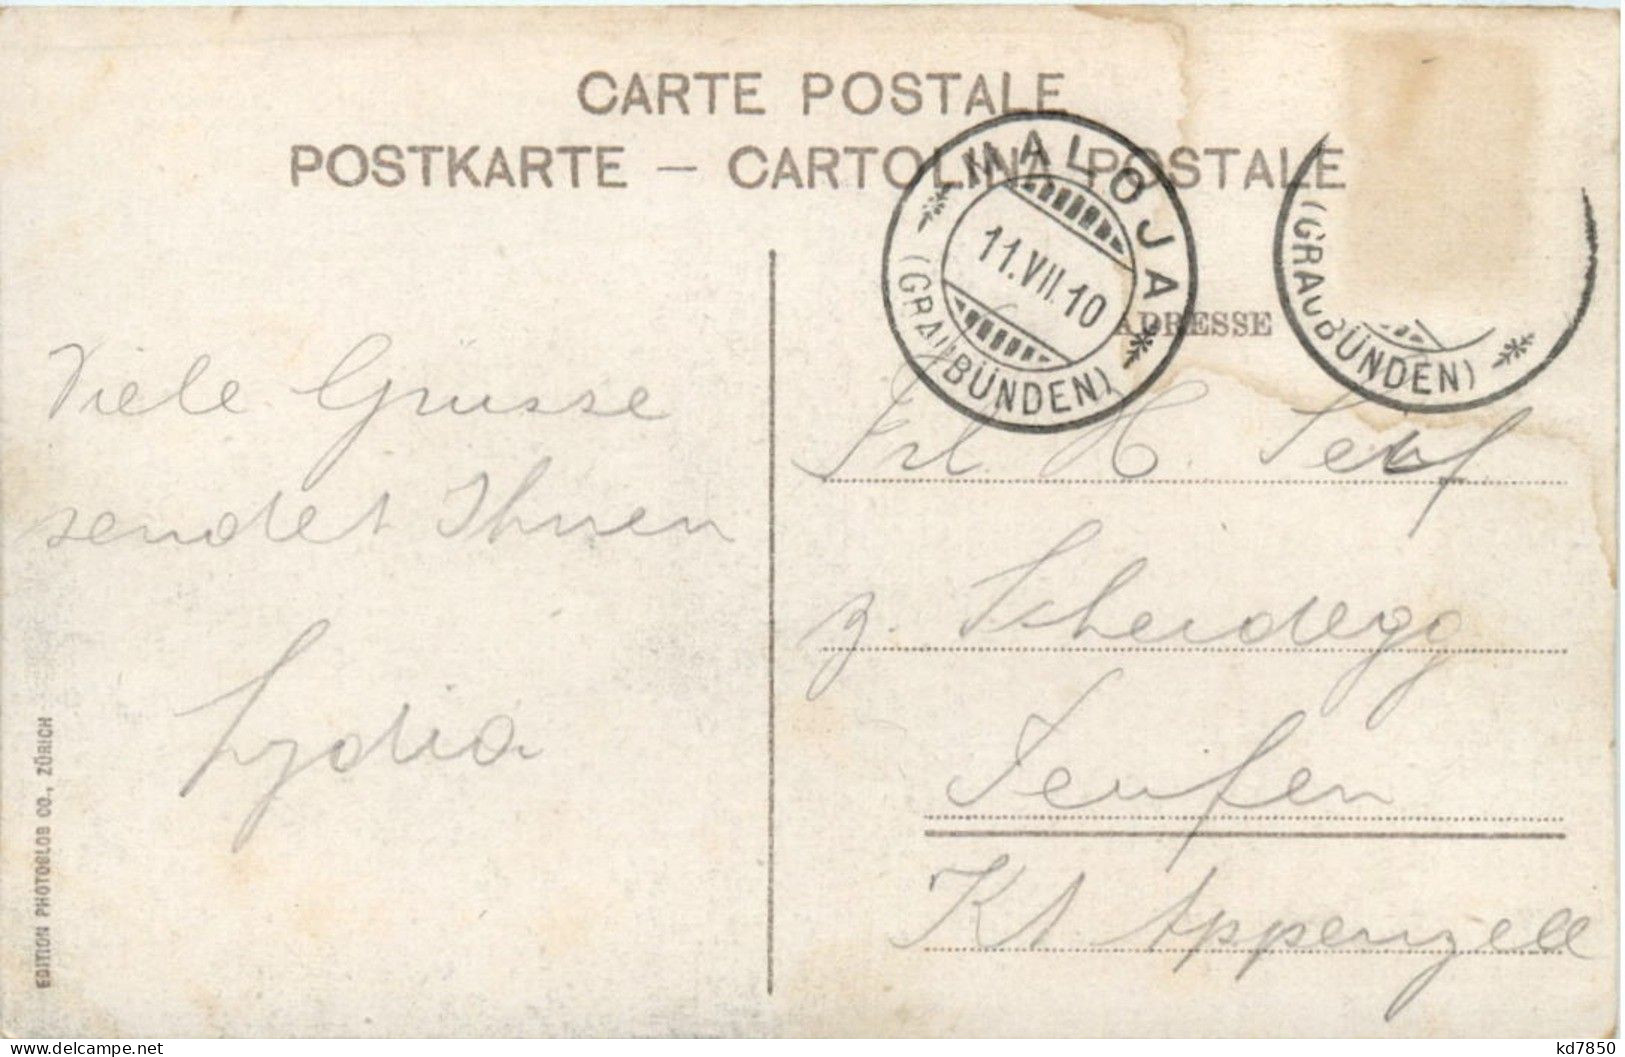 CARTE POSTALE
POSTKARTE — CARTOLINA POSTALE
MALOJA
11.VII.10
(GRAUBÜNDEN)
(GRAUBÜNDEN)
ADRESSE
Viele Grüsse
sendet Ihnen
Lydia
Frl. H.
z. Scheidegg
Teufen
Kt. Appenzell
EDITION PHOTOGLOB CO., ZÜRICH
kd7850